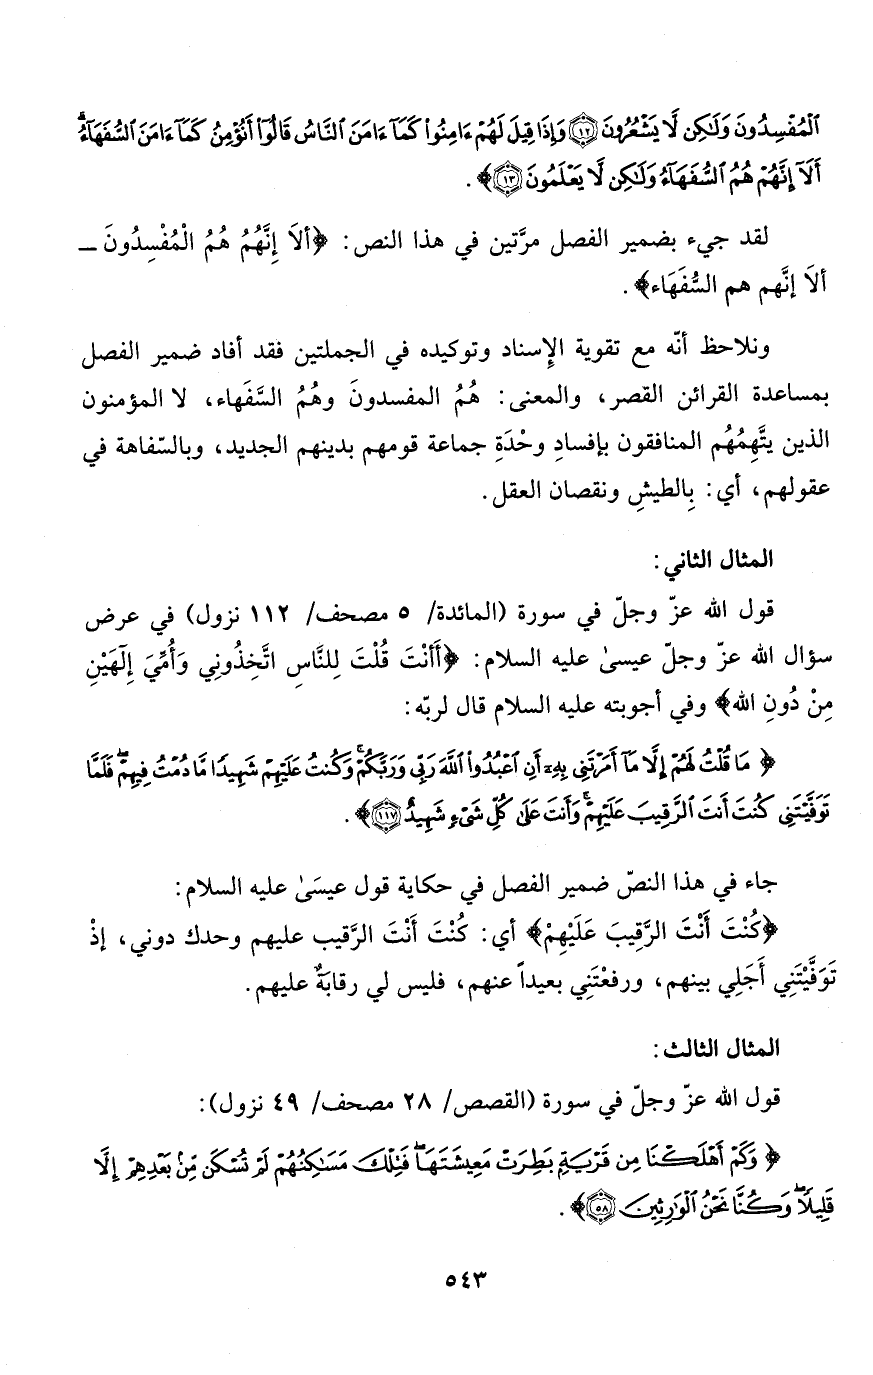 ٱلْمُفْسِدُونَ وَلَٰكِن لَّا يَشْعُرُونَ ﴿١٢﴾ وَإِذَا قِيلَ لَهُمْ ءَامِنُوا۟ كَمَآ ءَامَنَ ٱلنَّاسُ قَالُوٓا۟ أَنُؤْمِنُ كَمَآ ءَامَنَ ٱلسُّفَهَآءُ ۗ
أَلَآ إِنَّهُمْ هُمُ ٱلسُّفَهَآءُ وَلَٰكِن لَّا يَعْلَمُونَ ﴿١٣﴾﴾ .
لقد جيء بضمير الفصل مرَّتين في هذا النص: ﴿ألاَ إِنَّهُمُ هُمُ الْمُفْسِدُونَ ـ
ألاَ إنَّهم هم السُّفَهَاء﴾ .
ونلاحظ أنّه مع تقوية الإِسناد وتوكيده في الجملتين فقد أفاد ضمير الفصل
بمساعدة القرائن القصر، والمعنى: هُمُ المفسدونَ وهُمُ السَّفَهاء، لا المؤمنون
الذين يتَّهِمُهُم المنافقون بإفسادِ وحْدَةِ جماعة قومهم بدينهم الجديد، وبالسّفاهة في
عقولهم، أي: بِالطيشِ ونقصان العقل.
المثال الثاني:
قول الله عزّ وجلّ في سورة (المائدة/ ٥ مصحف/ ١١٢ نزول) في عرض
سؤال الله عزّ وجلّ عيسىٰ عليه السلام: ﴿أَأَنْتَ قُلْتَ لِلنَّاسِ اتَّخِذُونِي وَأُمِّيَ إِلَهَيْنِ
مِنْ دُونِ الله﴾ وفي أجوبته عليه السلام قال لربّه:
﴿ مَا قُلْتُ لَهُمْ إِلَّا مَآ أَمَرْتَنِى بِهِۦٓ أَنِ ٱعْبُدُوا۟ ٱللَّهَ رَبِّى وَرَبَّكُمْ ۚ وَكُنتُ عَلَيْهِمْ شَهِيدًا مَّا دُمْتُ فِيهِمْ ۖ فَلَمَّا
تَوَفَّيْتَنِى كُنتَ أَنتَ ٱلرَّقِيبَ عَلَيْهِمْ ۚ وَأَنتَ عَلَىٰ كُلِّ شَىْءٍ شَهِيدٌ ﴿١١٧﴾﴾ .
جاء في هذا النصّ ضمير الفصل في حكاية قول عيسَىٰ عليه السلام:
﴿كُنْتَ أَنْتَ الرَّقِيبَ عَلَيْهِمْ﴾ أي: كُنْتَ أَنْتَ الرَّقيب عليهم وحدك دوني، إذْ
تَوَفَّيْتَنِي أَجَلِي بينهم، ورفعْتَنِي بعيداً عنهم، فليس لي رقابَةٌ عليهم.
المثال الثالث:
قول الله عزّ وجلّ في سورة (القصص/ ٢٨ مصحف/ ٤٩ نزول):
﴿ وَكَمْ أَهْلَكْنَا مِن قَرْيَةٍ بَطِرَتْ مَعِيشَتَهَا ۖ فَتِلْكَ مَسَٰكِنُهُمْ لَمْ تُسْكَن مِّنۢ بَعْدِهِمْ إِلَّا
قَلِيلًا ۖ وَكُنَّا نَحْنُ ٱلْوَٰرِثِينَ ﴿٥٨﴾﴾ .
٥٤٣